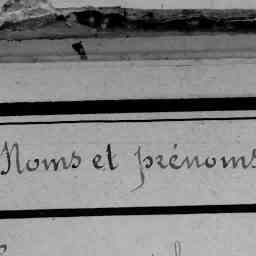 Noms et prénoms